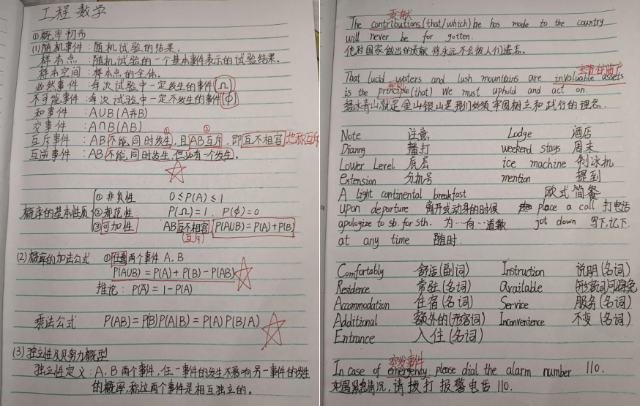 工程数学
①概率初步
(1)随机事件：随机试验的结果.
样本点：随机试验的一个基本事件表示的试验结果.
样本空间：样本点的全体.
必然事件：每次试验中一定发生的事件(Ω)
不可能事件：每次试验中一定不发生的事件(∅)
和事件：A∪B(A+B)
交事件：A∩B(AB)
互斥事件：AB不能同时发生，且AB互斥，即互不相容
互逆事件：AB不能同时发生，但必有一个发生.
概率的基本性质
①非负性 0≤P(A)≤1
②规范性 P(Ω)=1, P(∅)=0
③可加性 AB互不相容 P(A∪B)=P(A)+P(B)
互斥
(2)概率的加法公式 ①任意两个事件A,B
P(A∪B)=P(A)+P(B)-P(AB)
推论：P(A̅)=1-P(A)
乘法公式 P(AB)=P(B)P(A|B)=P(A)P(B|A)
(3)独立性及贝努力概型
独立性定义：A,B两个事件，任一事件的发生不影响另一事件的发生
的概率，称这两个事件是相互独立的.
贡献
The contributions(that/which) he has made to the country
will never be for gotten.
他对国家做出的贡献将永远不会被人们忘记.
That lucid waters and lush mountains are invaluable assets
is the principle(that) We must uphold and act on.
绿水青山，就是金山银山是我们必须牢固树立和践行的理念.
Note 注意 Lodge 酒店
Dianng 播打 weekend stays 周末
Lower Level 底层 ice machine 制冰机
Extension 分机号 mention 提到
A light continental breakfast 欧式简餐
upon departure 离开或动身的时候 place a call 打电话
apologize to sb. for sth. 为…有…道歉 jot down 写下,记下
at any time 随时
Comfortably 舒适(副词) Instruction 说明(名词)
Residence 常驻(名词) Available
Accommodation 住宿(名词) Service 服务(名词)
Additional 额外的(形容词) Inconvenience 不变(名词)
Entrance 入住(名词)
突发事件
In case of emergency, please dial the alarm number 110.
情况，请拨打报警电话110.